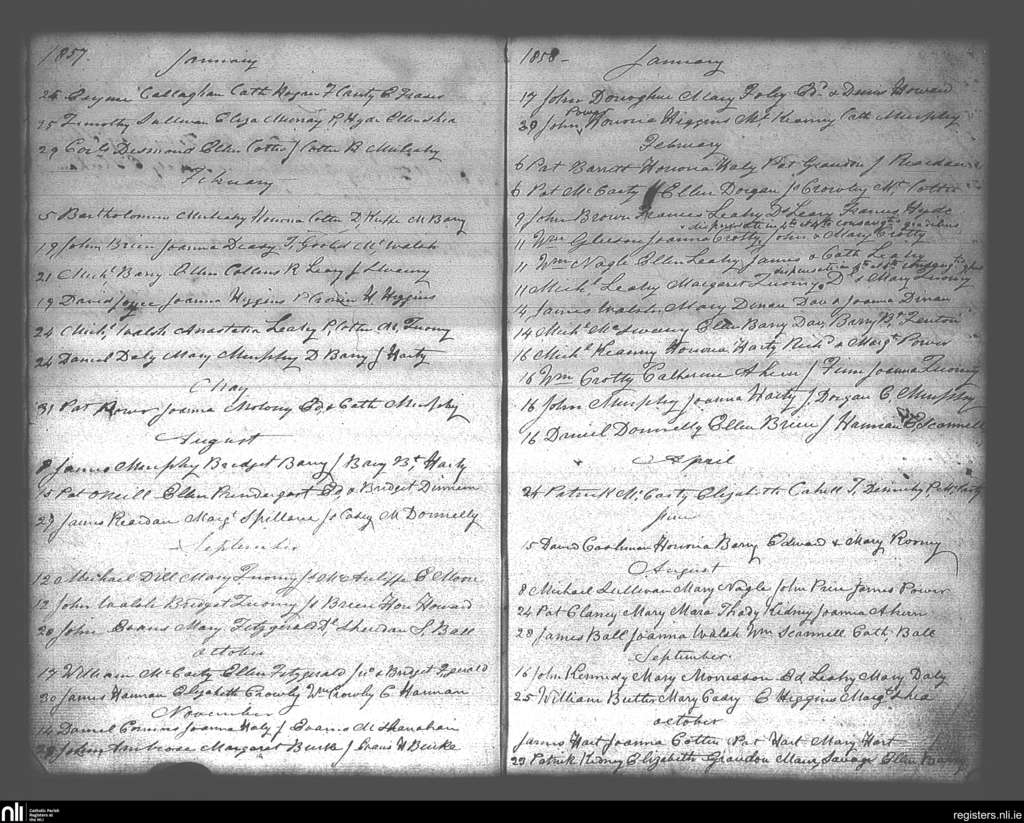 1857.
January
Callaghan Cath Hogan
25 Timothy Sullivan Eliza Murray P. Hyde Ellen Shea
29 Desmond Ellen Cotter J Cotter B Mulcahy
February
5 Bartholomew Mulcahy Honoria Cotter D. Keffe M Barry
19 John Brien Joanna Deasy T. Goold M. Walsh
21 Michl Barry Ellen Collins R Leary J Sweeny
19 David Joyce Joanna Higgins P Cronin H Higgins
24 Michl Walsh Anastatia Leahy P. Cotter M. Twomy
24 Daniel Daly Mary Murphy D Barry J Harty
May
31 Pat Power Joanna Molony Ed & Cath Murphy
August
8 James Murphy Bridget Barry J Barry Bt Harty
15 Pat ONeill Ellen Prendergast Ed & Bridget
27 James Reardan Margt Spillane Jo Casey M Donnelly
September
12 Michael Dill Mary Twomy Js McAuliffe E Moore
12 John Walsh Bridget Twomy Js Brien Hon Howard
20 John Evans Mary Fitzgerald Sheehan S. Ball
October
17 William McCarty Ellen Fitzgerald Jno & Bridget Fzgerald
30 James Hannan Elizabeth Crowly Wm Crowly C Hannan
November
14 Daniel Connins Joanna Haly J Evans M Shanahan
29 John Ambrose Margaret Burke J Evans H Burke
1858-
January
17 John Donoghue Mary Foley Ed & Denis Howard
30 John Power Honoria Higgins Ml Keanny Cath Murphy
February
6 Pat Barrott Honoria Haly Pat Grandon J Reardan
6 Pat McCarty Ellen Dorgan Js Crowley Ml Cotter
9 John Brown Frances Leahy D. Leary Francis Hyde
11 Wm Gleeson Joanna Crotty John & Mary Crotty
11 Wm Nagle Ellen Leahy James & Cath Leahy
11 Michl Leahy Margaret Twomy D & Mary Twomy
14 James Walsh Mary Dinan Dav & Joanna Dinan
14 Michl McSweeny Ellen Barry Dav Barry Bt Fenton
16 Michl Keanny Honoria Harty Richd & Margt Power
16 Wm Crotty Catherine Ahern J Finn Joanna Twomy
16 John Murphy Joanna Harty J Dorgan C Murphy
16 Daniel Donnelly Ellen Brien J Hannan E Scannell
April
24 Patrick McCarty Elizabeth Cahill T. Dennehy P. McCarty
June
15 David Cashman Honoria Barry Edward & Mary Roony
August
8 Michael Sullivan Mary Nagle John Prin James Power
24 Pat Clancy Mary Mara Thady Kidny Joanna Ahern
28 James Ball Joanna Walsh Wm Scannell Cath. Ball
September
16 John Kennedy Mary Morrisson Ed Leahy Mary Daly
25 William Butler Mary Casey E Higgins Margt Shea
October
James Hart Joanna Cotter Pat Hart Mary Hart
29 Patrick Kidney Elizabeth Grandon Maur. Savage Ellen Barry
nli
Catholic Parish
Registers at
the NLI
registers.nli.ie